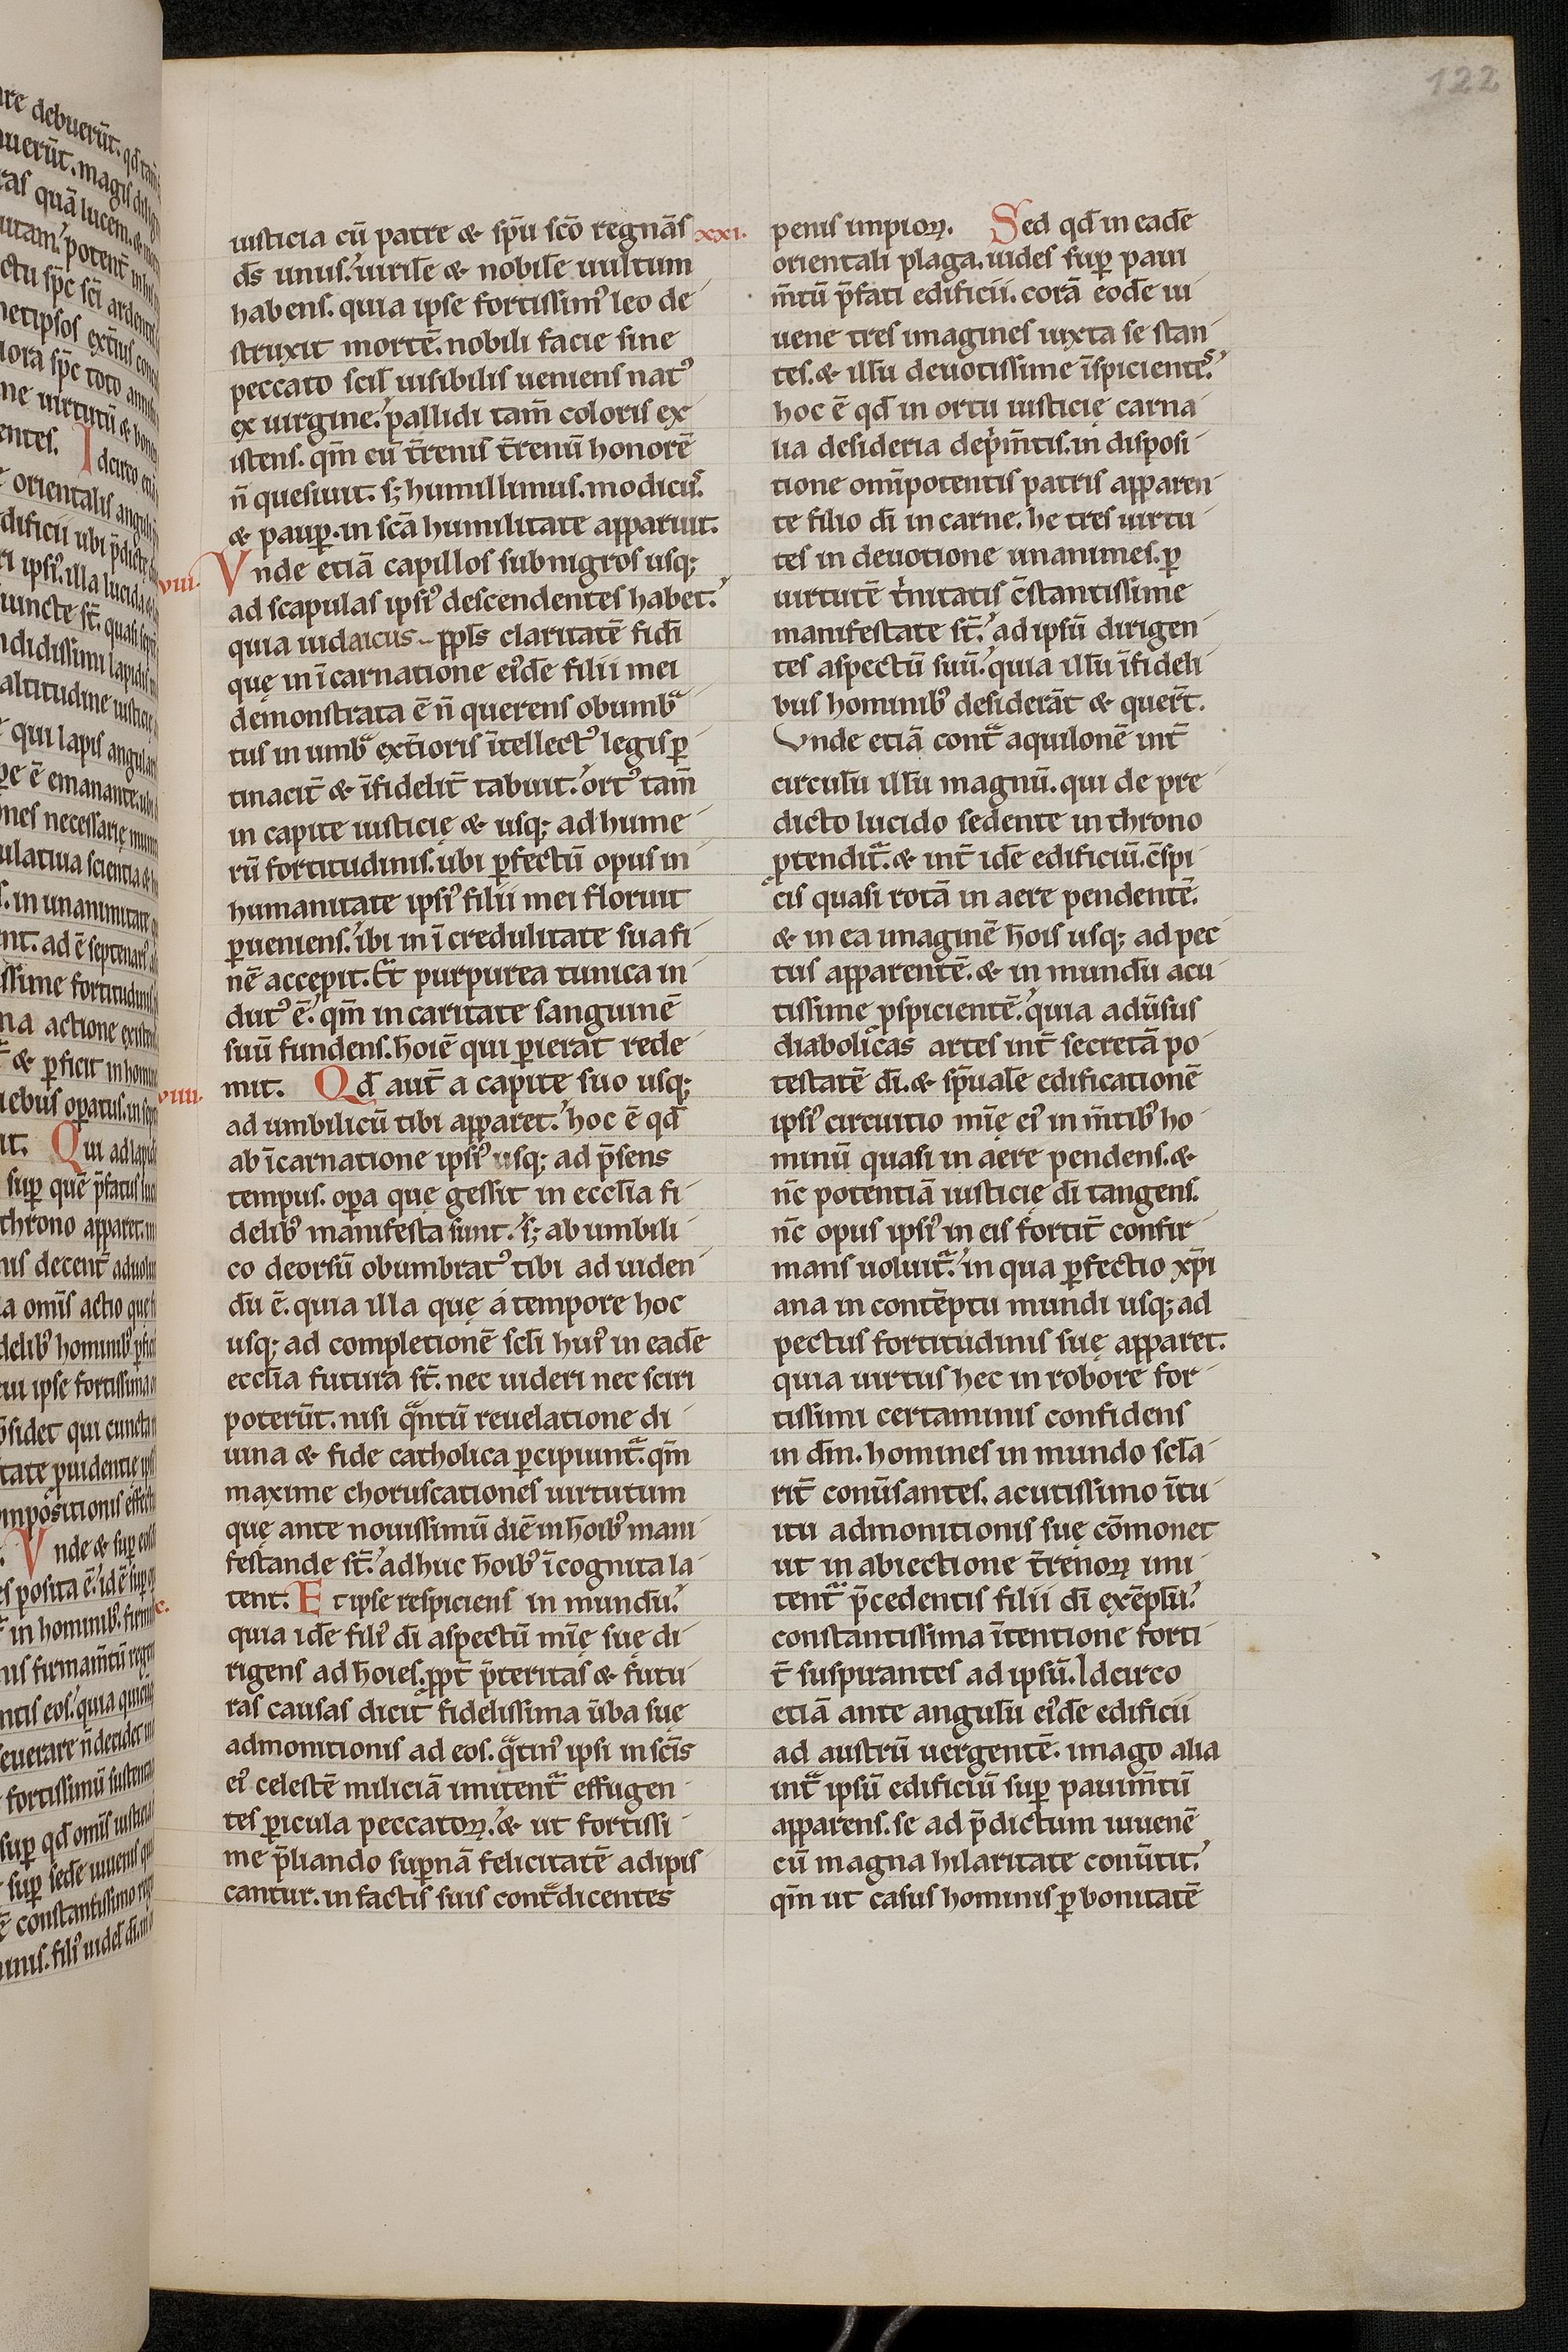 122
iusticia cū patre & sp̄u scō regnāſ
d̄s unus. uirilē & nobilē uultum
habens. quia ipse fortissim᾽ leo de
struxit mortē. nobili facie sine
peccato scił uisibilis ueniens nat᾽
ex uirgine. pallidi tam̄ coloris ex
istens. qm̄ cū t̄renis t̄renū honorē
n̄ quesiuit. s; humillimus. modicus.
& paup̱. in scā humilitate apparuit.
viii.
Vnde etiā capillos subnigros usq;
ad scapulas ipsi᾽ descendentes habet.
quia iudaicus p̱pls claritatē fidei
quę in īcarnatione ei᾽dē filii mei
demonstrata ē n̄ querens obumbͣ
tus in umbͣ ext̄ioris ītellect᾽ legis p̱
tinacit̄ & īfidelit̄ tabuit. ort᾽ tam̄
in capite iusticię & usq; ad hume
rū fortitudinis. ubi p̱fectū opus in
humanitate ipsi᾽ filii mei floruit
p̱ueniens. ibi in īcredulitate sua fi
nē accepit. Et purpurea tunica in
dut᾽ ē. qm̄ in caritate sanguinē
suū fundens. hoīe qui p̱ierat rede
viiii.
mit. Qd̄ aut̄ a capite suo usq;
ad umbilicū tibi apparet. hoc ē qd̄
ab īcarnatione ipsi᾽ usq; ad p̄sens
tempus. op̱a quę gessit in ecclīa fi
delib᾽ manifesta sunt. s; ab umbili
co deorsū obumbrat᾽ tibi ad uiden
dū ē. quia illa quę a tempore hoc
usq; ad completionē scłi hui᾽ in eadē
ecclīa futura st̄. nec uideri nec sciri
poterūt. nisi qͣntū reuelatione di
uina & fide catholica p̱cipiunt̃. qm̄
maxime choruscationes uirtutum
quę ante nouissimū diē in hoīb᾽ mani
festande st̄. adhuc hoīb᾽ īcognita la
x.
tent. Et ipse respiciens in mundū.
quia idē fili᾽ dī aspectū mīę suę di
rigens ad hoīes. p̱pt̄ p̄teritas & futu
ras causas dicit fidelissima ūba suę
admonitionis ad eos. qͣtin᾽ ipsi in scīs
ei᾽ celestē miliciā imitent̃ effugen
tes p̱icula peccatoꝝ. & ut fortissi
me p̄liando sup̱nā felicitatē adipis
cantur. in factis suis contͣdicentes
xxi.
penis impioꝝ. Sed qd̄ in eadē
orientali plaga. uides sup̱ paui
m̄tū p̄fati edificii. corā eodē iu
uene tres imagines iuxta se stan
tes. & illū deuotissime īspicientes.
hoc ē qd̄ in ortu iusticię carna
lia desideria dep̍m̄tis. in disposi
tione om̄ipotentis patris apparen
te filio dī in carne. he tres uirtu
tes in deuotione unanimes. p̱
uirtutē t̍nitatis c̄stantissime
manifestate st̄. ad ipsū dirigen
tes aspectū suū. quia illū īfideli
bus hominib᾽ desiderāt & quer̄t.
Vnde etiā contͣ aquilonē int̄
circulū illū magnū. qui de pre
dicto lucido sedente in throno
p̱tendit̃. & int̄ idē edificiū. c̄spi
cis quasi rotā in aere pendentē.
& in ea imaginē hoīs usq; ad pec
tus apparentē. & in mundū acu
tissime p̱spicientē. quia adūsus
diabolicas artes int̄ secretā po
testatē dī. & sp̄ualē edificationē
ipsi᾽ circuitio mīę ei᾽ in m̄tib᾽ ho
minū quasi in aere pendens. &
nc̄ potentiā iusticię dī tangens.
nc̄ opus ipsi᾽ in eis fortit̄ confir
mans uoluit̃. in qua p̱fectio xp̄i
ana in contēptu mundi usq; ad
pectus fortitudinis suę apparet.
quia uirtus hec in robore for
tissimi certaminis confidens
in dm̄. homines in mundo scła
rit̄ conūsantes. acutissimo ītu
itu admonitionis suę cōmonet
ut in abiectione t̄renoꝝ imi
tent̃ p̄cedentis filii dī exēplū.
constantissima ītentione forti
t̄ suspirantes ad ipsū. Idcirco
etiā ante angulū ei᾽dē edificii
ad austrū uergentē. imago alia
intͣ ipsū edificiū sup̱ pauim̄tū
apparens. se ad p̄dictum iuuenē
cū magna hilaritate conūtit.
qm̄ ut casus hominis p̱ bonitatē